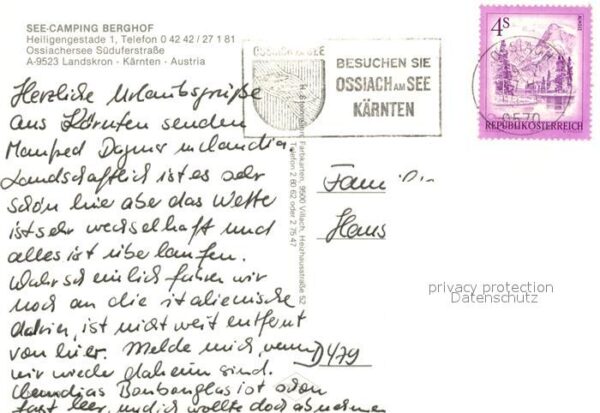 SEE-CAMPING BERGHOF
Heiligengestade 1, Telefon 0 42 42 / 27 1 81
Ossiachersee Süduferstraße
A-9523 Landskron - Kärnten - Austria
Herzliche Urlaubsgrüße
aus Kärnten senden
Manfred Dagmar u. Claudia
Landschaftlich ist es sehr
schön hier aber das Wetter
ist sehr wechselhaft und
alles ist überlaufen.
Wahrscheinlich fahren wir
noch an die italienische
dahin, ist nicht weit entfernt
von hier. Melde mich wenn
wir wieder daheim sind.
Claudias Bonbonglas ist schon
fast leer, und ich wollte doch abnehmen
OSSIACH AM SEE
BESUCHEN SIE
OSSIACH AM SEE
KÄRNTEN
4S
ALMSEE
REPUBLIK ÖSTERREICH
9570
Farbkarten, 9500 Villach, Heizhausstraße 52
Telefon 2 60 62 oder 2 75 47
Fam
Hans
D479
privacy protection
Datenschutz